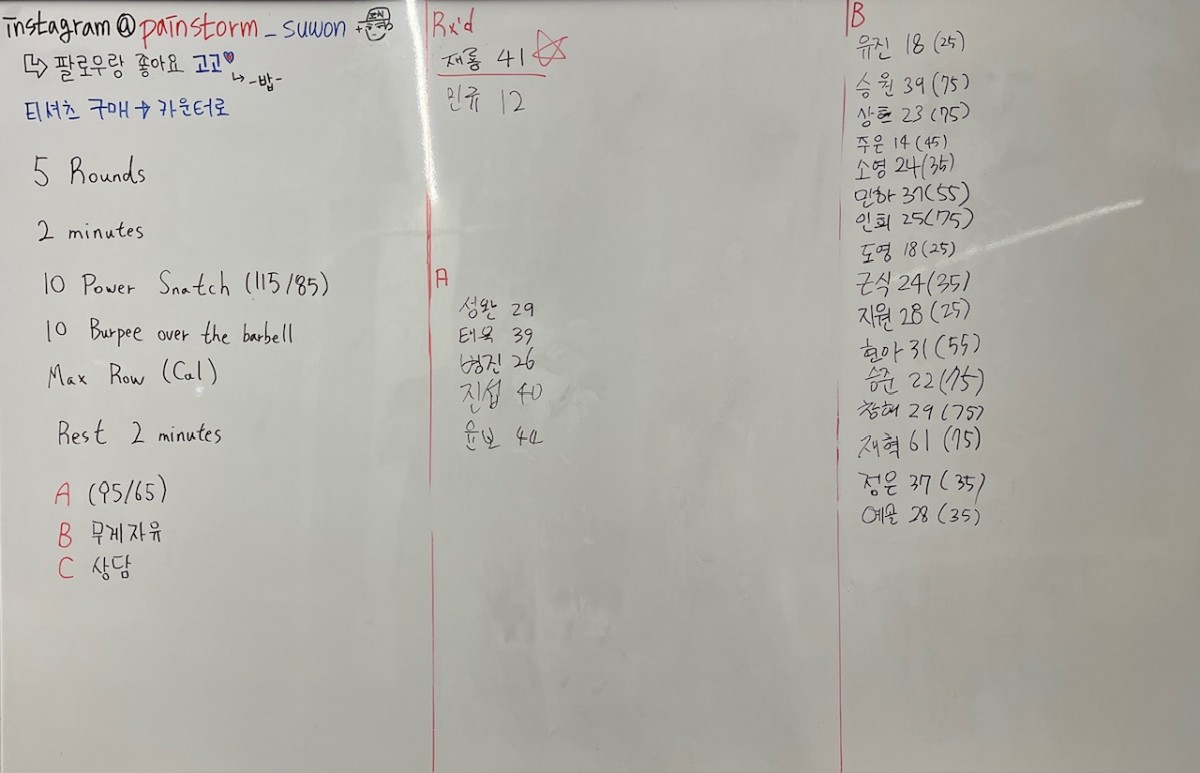 instagram@painstorm_suwon
↳ 팔로우랑 좋아요 고고♥
↳ -밥-
티셔츠 구매 → 카운터로
5 Rounds
2 minutes
10 Power Snatch (115/85)
10 Burpee over the barbell
Max Row (Cal)
Rest 2 minutes
A (95/65)
B 무게자유
C 상담
Rx'd
재룡 41
민규 12
A
성완 29
태욱 39
병진 26
진섭 40
윤보
B
유진 18 (25)
승원 39 (75)
상호 23 (75)
주은 14 (45)
소영 24 (35)
민하 37 (55)
인회 25 (75)
도영 18 (25)
근식 24 (35)
지원 28 (25)
현아 31 (55)
승준 22 (75)
창해 29 (75)
재혁 61 (75)
정은 37 (35)
28 (35)